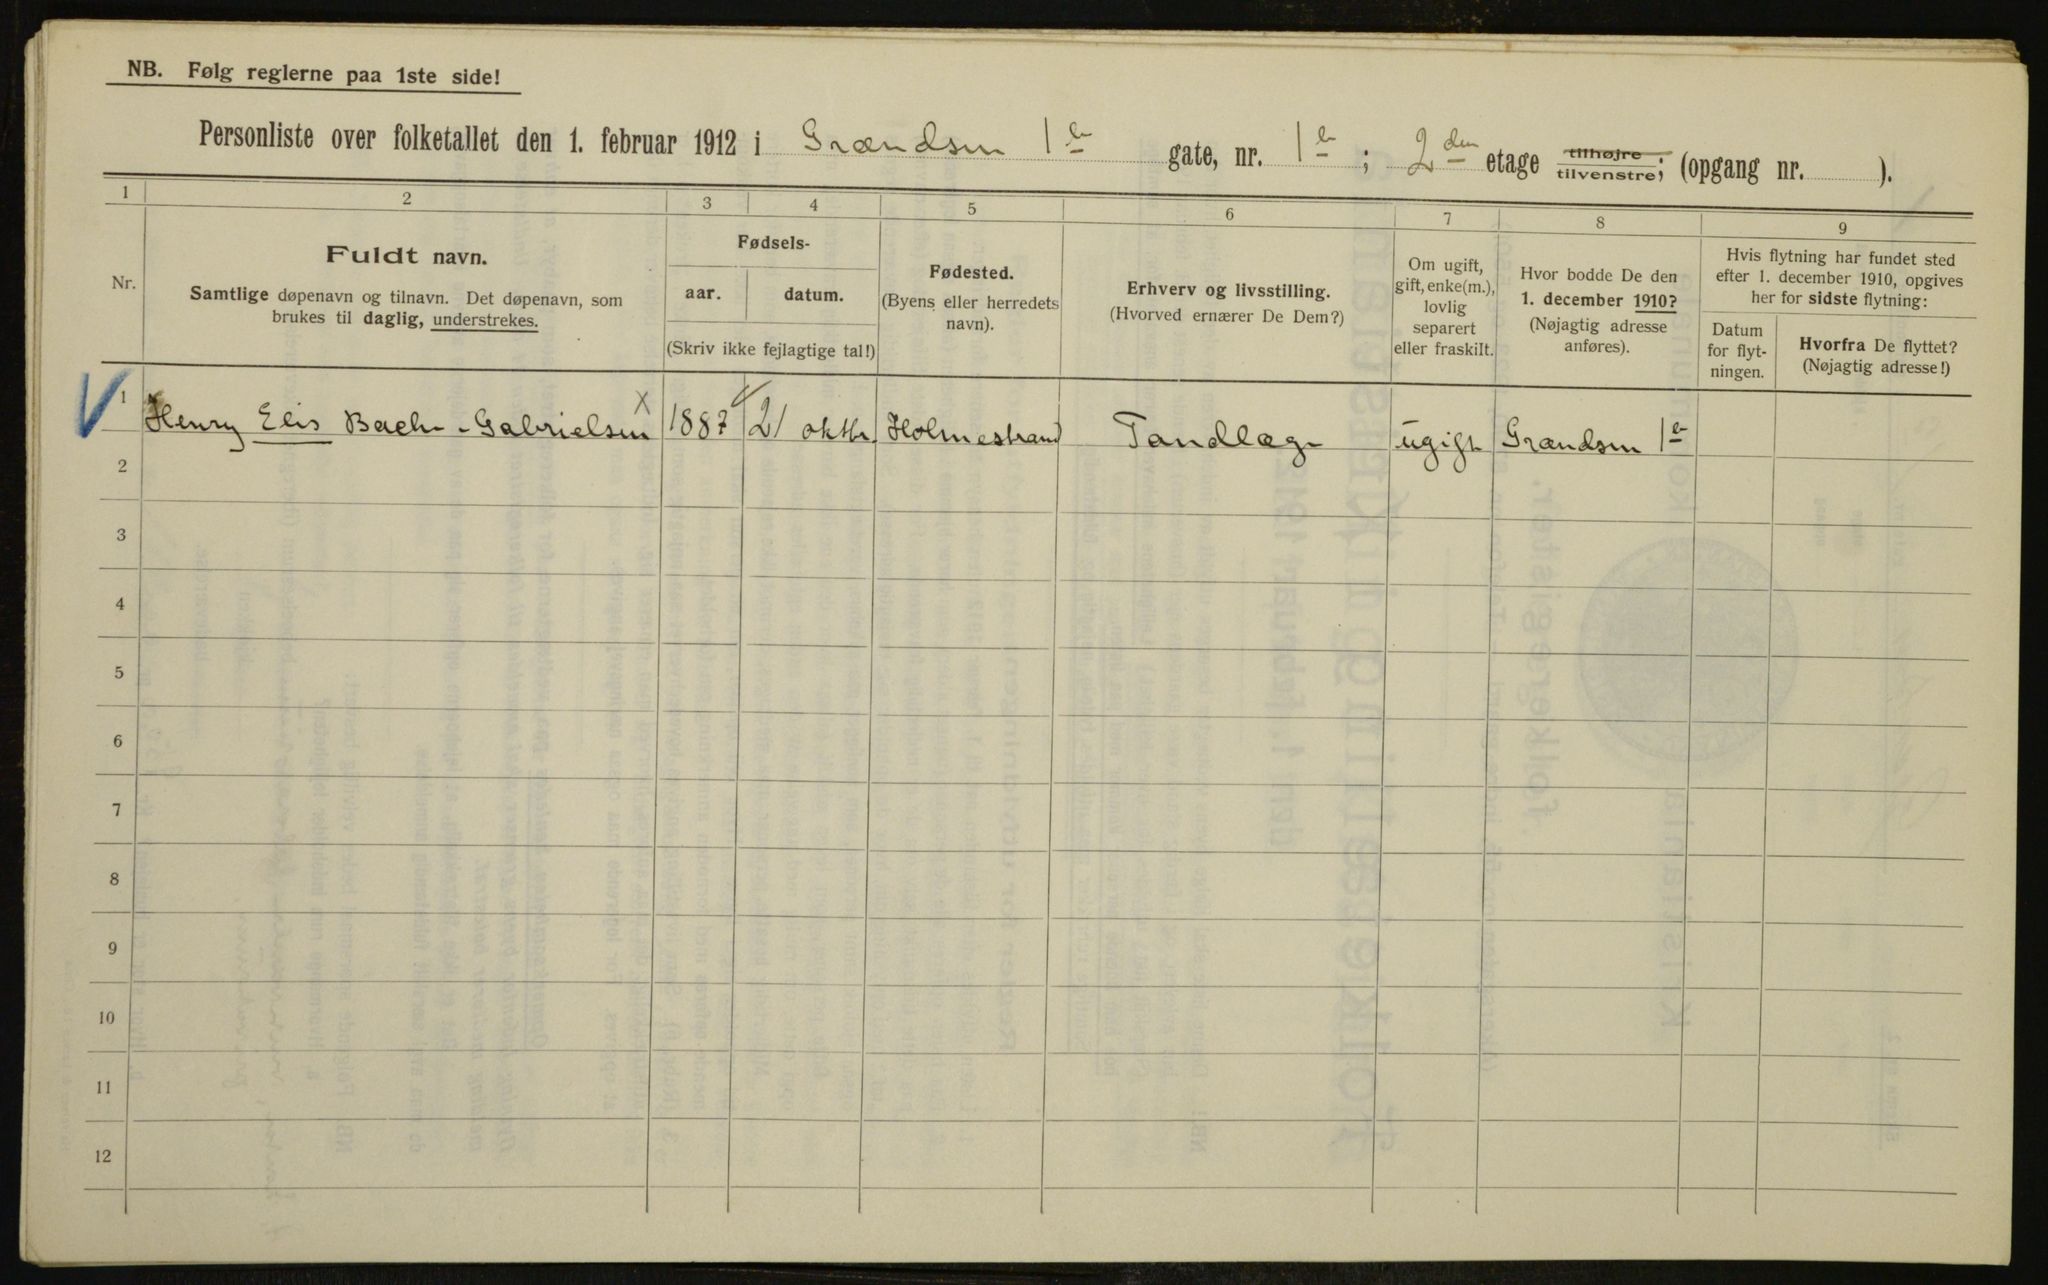 NB. Følg reglerne paa 1ste side!
Personliste over folketallet den 1. februar 1912 i Grændsen 1 b gate, nr. 1 b ; 2 den etage tilhøjre tilvenstre; (opgang nr. ).
1 2 3 4 5 6 7 8 9
Nr.
Fuldt navn.
Samtlige døpenavn og tilnavn. Det døpenavn, som
brukes til daglig, understrekes.
Fødsels-
aar. datum.
(Skriv ikke fejlagtige tal!)
Fødested.
(Byens eller herredets
navn).
Erhverv og livsstilling.
(Hvorved ernærer De Dem?)
Om ugift,
gift, enke(m.),
lovlig
separert
eller fraskilt.
Hvor bodde De den
1. december 1910?
(Nøjagtig adresse
anføres).
Hvis flytning har fundet sted
efter 1. december 1910, opgives
her for sidste flytning:
Datum
for flyt-
ningen.
Hvorfra De flyttet?
(Nøjagtig adresse!)
1 Henry Elis Bach-Gabrielsen X 1887 21 oktbr. Holmestrand Tandlæge ugift Grændsen 1 b
2
3
4
5
6
7
8
9
10
11
12